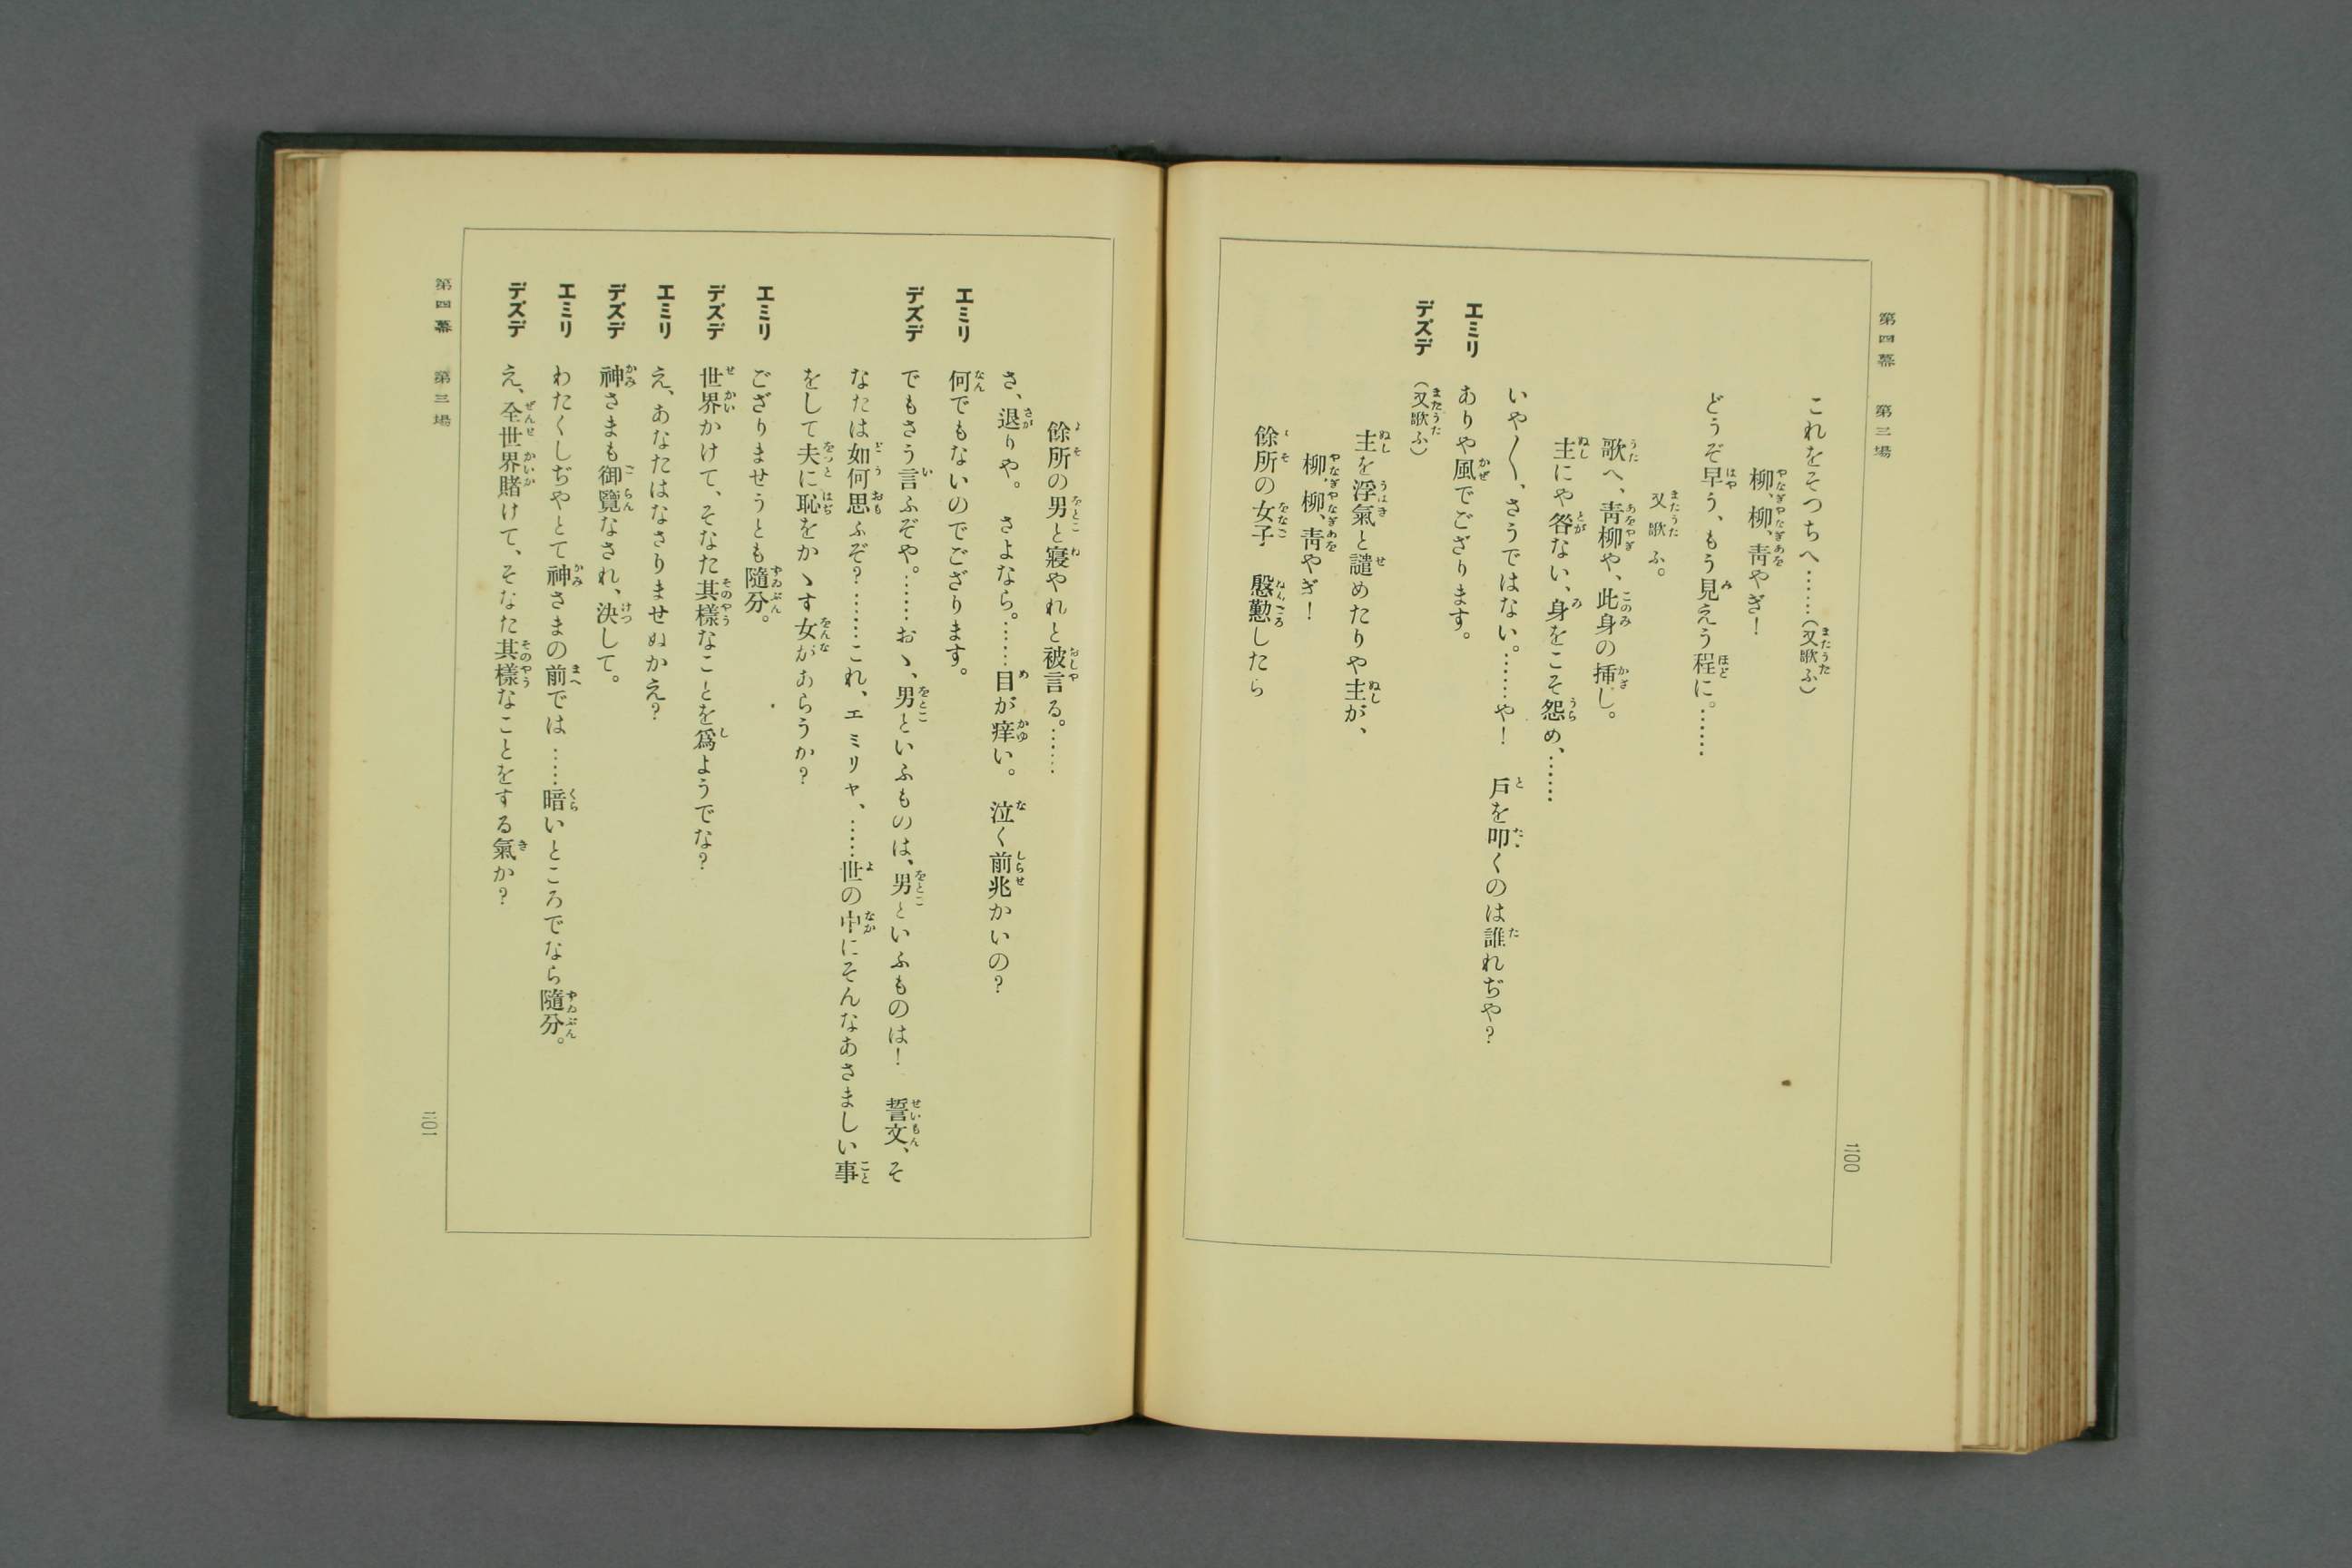 第四幕　第三場
これをそつちへ……(又歌ふ)
柳、柳、靑やぎ！
どうぞ早う、もう見えう程に。……
又歌ふ。
歌へ、靑柳や、此身の挿し。
主にや咎ない、身をこそ怨め、……
いや〳〵、さうではない。……や！　戶を叩くのは誰れぢや？
エミリ　ありや風でござります。
デズデ　(又歌ふ)
主を浮氣と譴めたりや主が、
柳、柳、靑やぎ！
餘所の女子　慇懃したら
三〇〇
餘所の男と寢やれと被言る。……
さ、退りや。　さよなら。……目が痒い。　泣く前兆かいの？
エミリ　何でもないのでござります。
デズデ　でもさう言ふぞや。……おゝ、男といふものは、男といふものは！　誓文、そ
なたは如何思ふぞ？……これ、エミリャ、……世の中にそんなあさましい事
をして夫に恥をかゝす女があらうか？
エミリ　ござりませうとも隨分。
デズデ　世界かけて、そなた其樣なことを爲ようでな？
エミリ　え、あなたはなさりませぬかえ？
デズデ　神さまも御覽なされ、決して。
エミリ　わたくしぢやとて神さまの前では……暗いところでなら隨分。
デズデ　え、全世界賭けて、そなた其樣なことをする氣か？
第四幕　第三場
三〇一